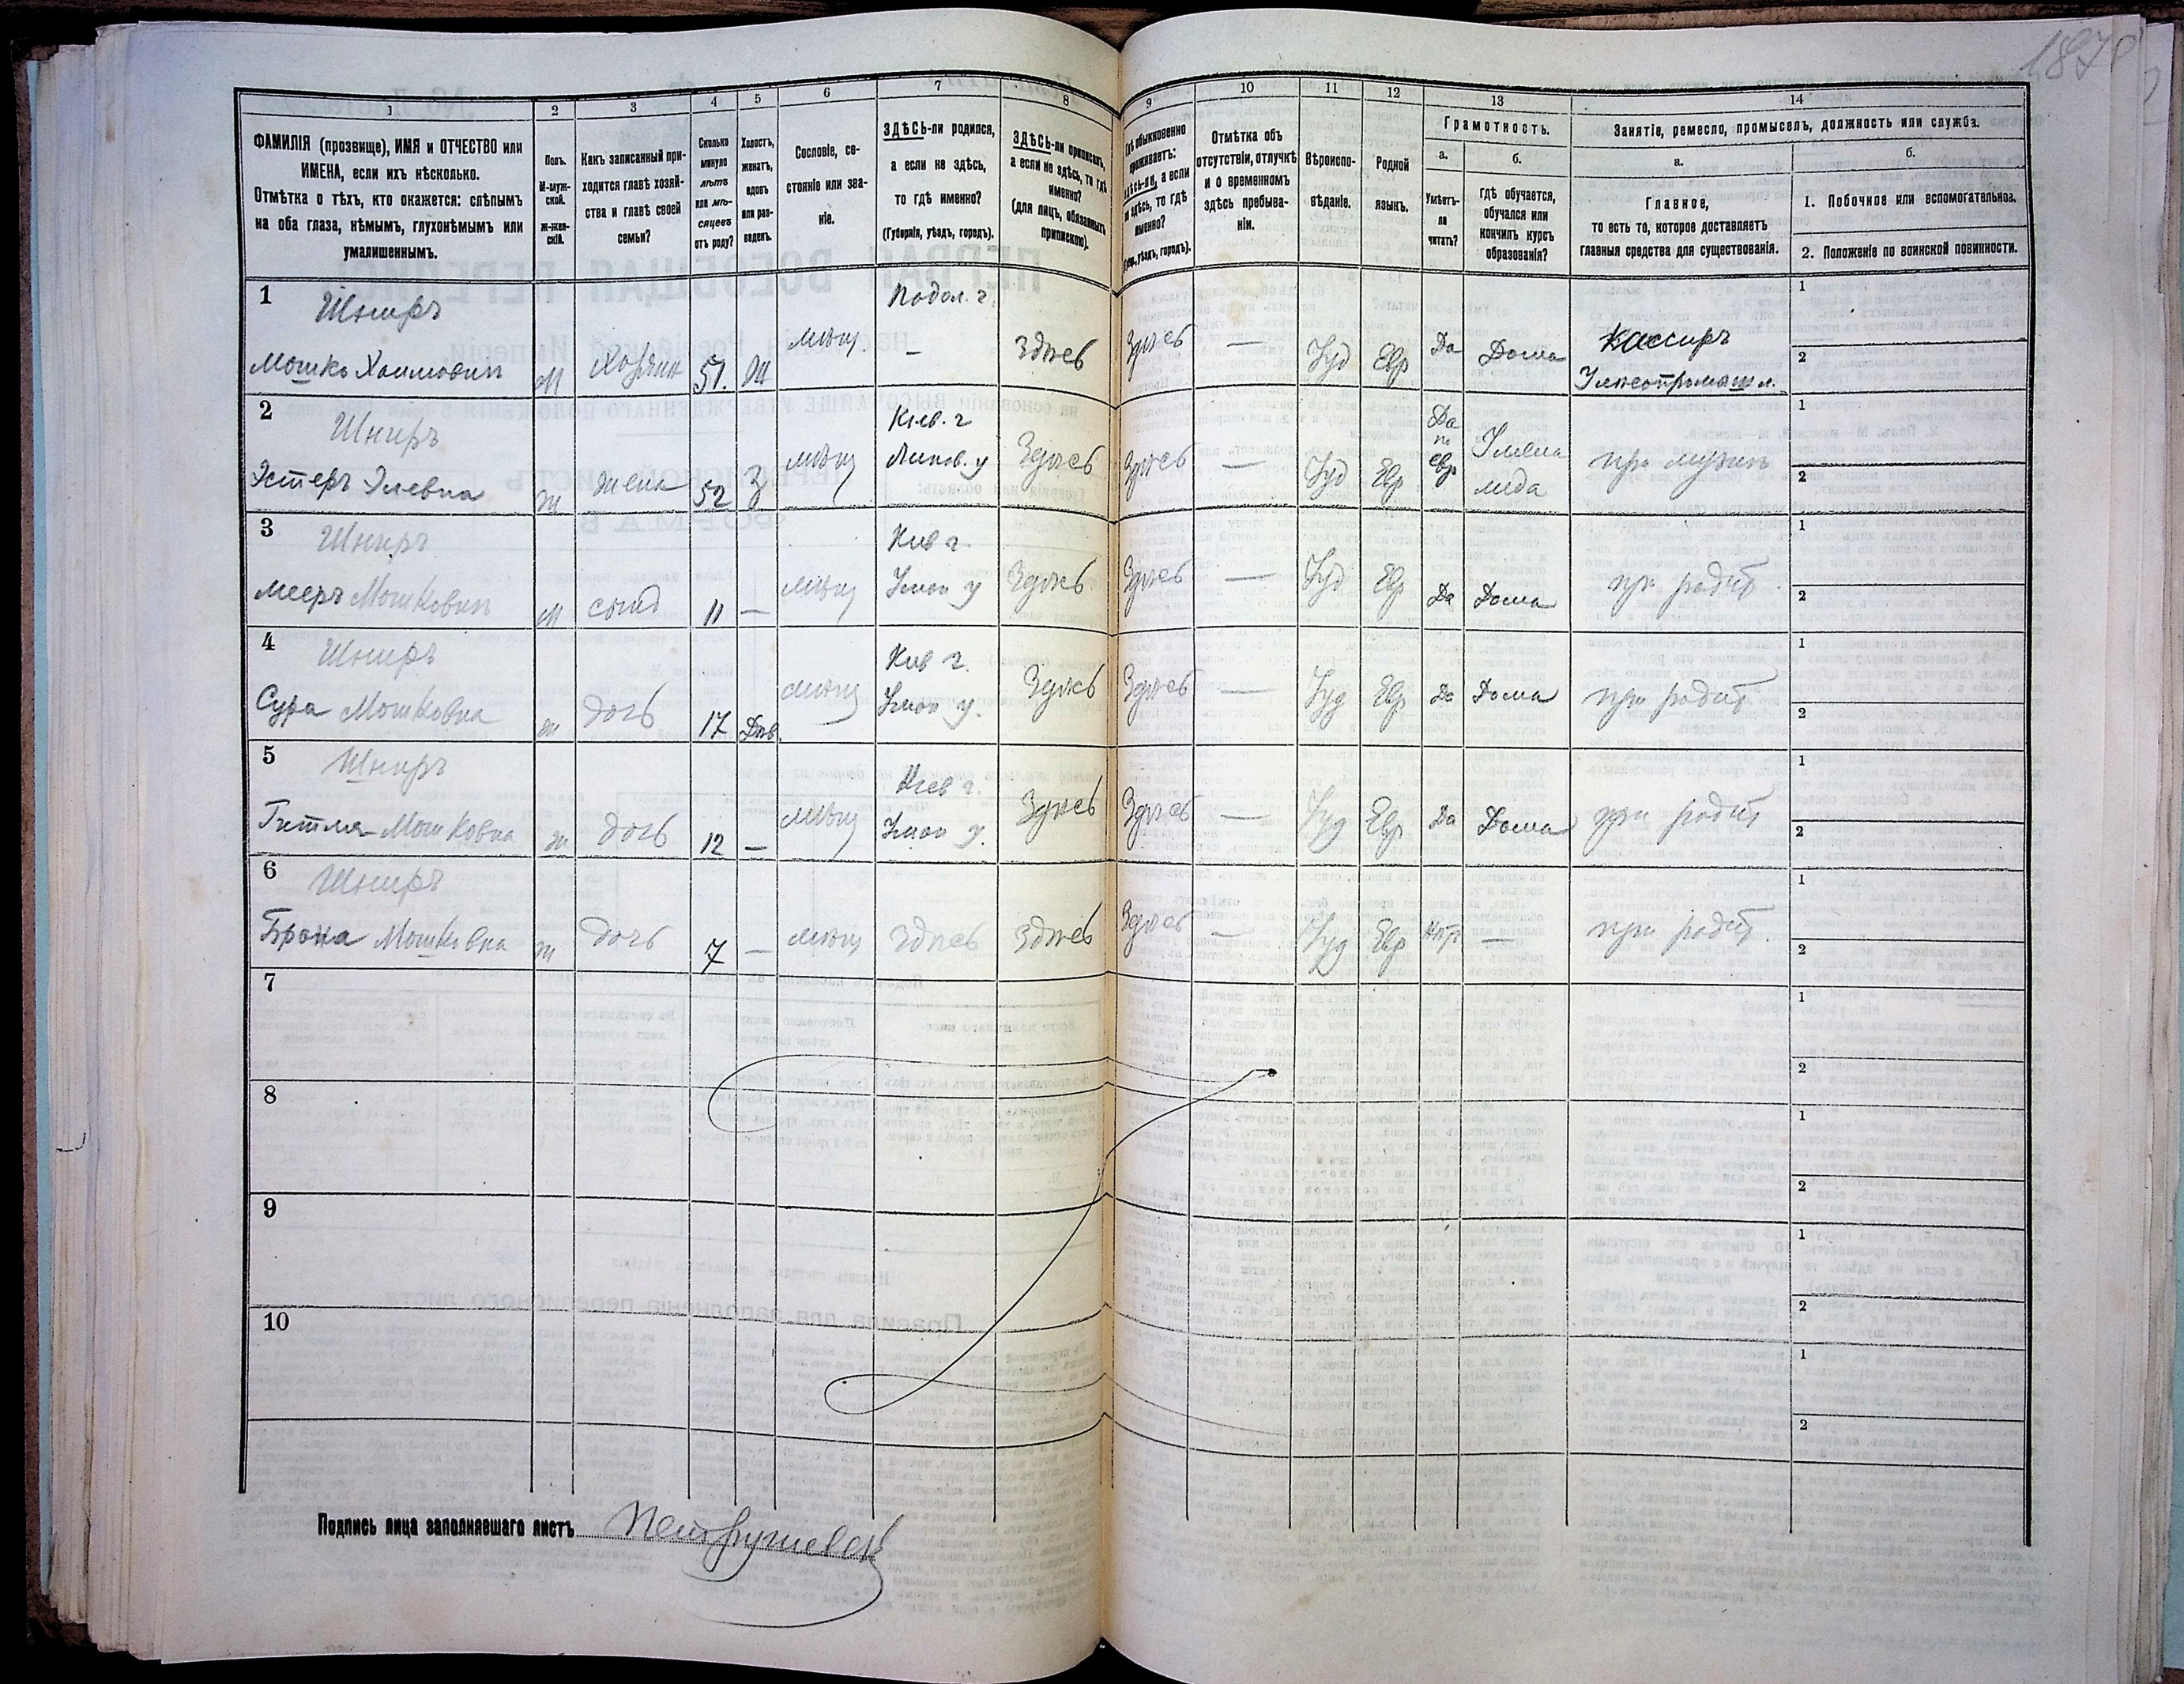 1878
1 2 3 4 5 6 7 8 9 10 11 12 13 14
ФАМИЛІЯ (прозвище), ИМЯ и ОТЧЕСТВО или
ИМЕНА, если ихъ нѣсколько.
Отмѣтка о тѣхъ, кто окажется: слѣпымъ
на оба глаза, нѣмымъ, глухонѣмымъ или
умалишеннымъ.
Полъ.
М-муж-
ской.
Ж-жен-
скій.
Какъ записанный при-
ходится главѣ хозяй-
ства и главѣ своей
семьи?
Сколько
минуло
лѣтъ
или мѣ-
сяцевъ
отъ роду?
Холостъ,
женатъ,
вдовъ
или раз-
веденъ.
Сословіе, со-
стояніе или зва-
ніе.
ЗДѢСЬ-ли родился,
а если не здѣсь,
то гдѣ именно?
(Губернія, уѣздъ, городъ).
ЗДѢСЬ-ли приписанъ,
а если не здѣсь, то гдѣ
именно?
(для лицъ, обязанныхъ
припискою).
обыкновенно
проживаетъ:
здѣсь-ли, а если
не здѣсь, то гдѣ
именно?
уѣздъ, городъ).
Отмѣтка объ
отсутствіи, отлучкѣ
и о временномъ
здѣсь пребыва-
ніи.
Вѣроиспо-
вѣданіе.
Родной
языкъ.
Грамотность.
а.
Умѣетъ-
ли
читать?
б.
гдѣ обучается,
обучался или
кончилъ курсъ
образованія?
Занятіе, ремесло, промыселъ, должность или служба.
а.
Главное,
то есть то, которое доставляетъ
главныя средства для существованія.
б.
1. Побочное или вспомогательное.
2. Положеніе по воинской повинности.
1 Шниръ Подол. г. 1
Мошко Хаимовичъ М Хозяин 51. Ж мѣщ. — Здѣсь Здѣсь — Іуд Евр Да Дома Кассиръ 2
2 Шниръ Кіев. г Да 1
Эстеръ Элевна ж жена 52 З мѣщ Липов. у Здѣсь Здѣсь — Іуд Евр по евр при мужѣ 2
3 Шниръ Кив г. 1
Мееръ Мошковичъ М сынъ 11 — мѣщ Уман у Здѣсь Здѣсь — Іуд Евр Да Дома при родит. 2
4 Шниръ Кив г. 1
Сура Мошковна ж дочь 17 Дѣв. мѣщ Уман у. Здѣсь Здѣсь — Іуд Евр Да Дома при родит. 2
5 Шниръ Кіев г. 1
Гитля Мошковна ж дочь 12 — мѣщ Уман у. Здѣсь Здѣсь — Іуд Евр Да Дома при родит. 2
6 Шниръ 1
Мошковна ж дочь 7 — мѣщ Здѣсь Здѣсь Здѣсь — Іуд Евр Нѣт — при родит. 2
7 1
2
8 1
2
9 1
2
10 1
2
Подпись лица заполнявшаго листъ